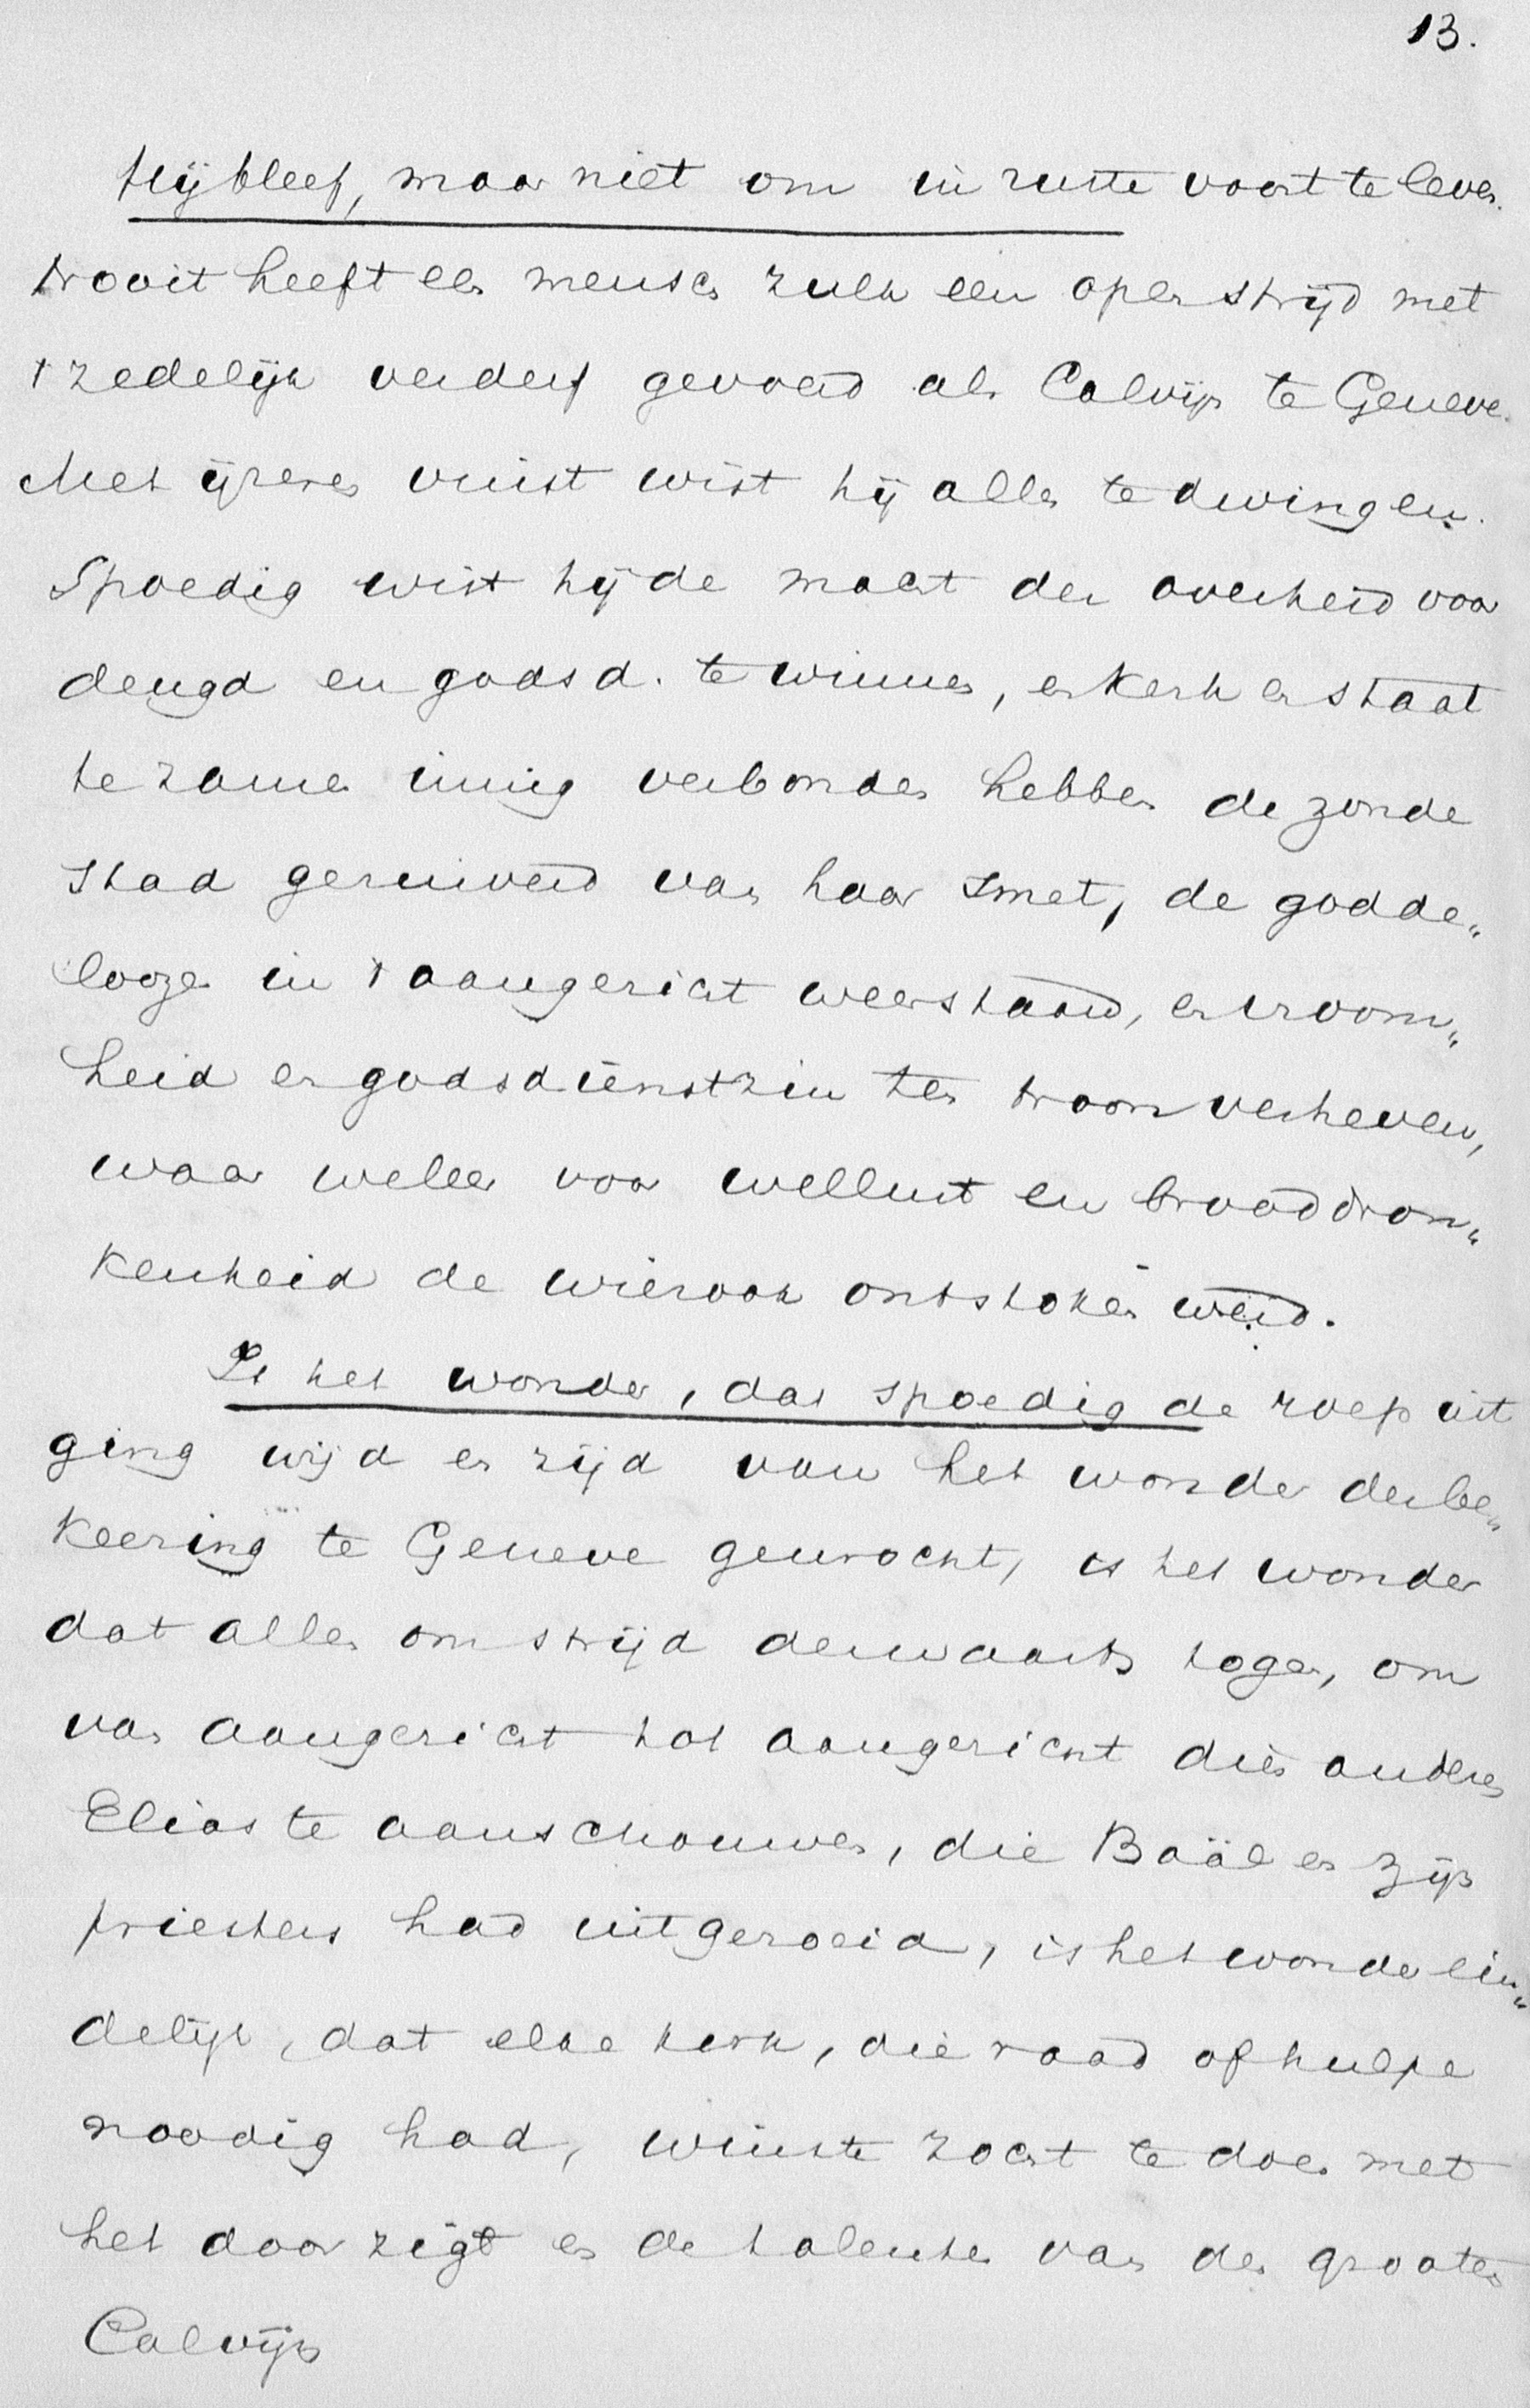 13.
Hij bleef, maar niet om in ruste voort te leven.
Nooit heeft een mensch zulk een open strijd met
't zedelijk verderf gevoerd als Calvijn te Geneve.
Met ijzeren vuist wist hij allen te dwingen.
Spoedig wist hij de macht der overheid voor
deugd en godsd. te winnen, en kerk en staat
te zamen innig verbonden hebben de zonde
stad gezuiverd van haar smet, de godde„
loozen in 't aangezicht weerstaan, en vroom„
heid en godsdienstzin ten troon verheven,
waar weleer voor wellust en brooddron„
kenheid de wierook ontstoken werd.
Is het wonder, dat spoedig de roep uit
ging wijd en zijd van het wonder der be„
keering te Geneve gewrocht, is het wonder
dat allen om strijd derwaarts togen, om
van aangezicht tot aangezicht dien anderen
Elias te aanschouwen, die Baäl en zijn
priesters had uitgeroeid, is het wonder ein„
delijk, dat elke kerk, die raad of hulpe
noodig had, winste zocht te doen met
het doorzigt en de talenten van den grooten
Calvijn